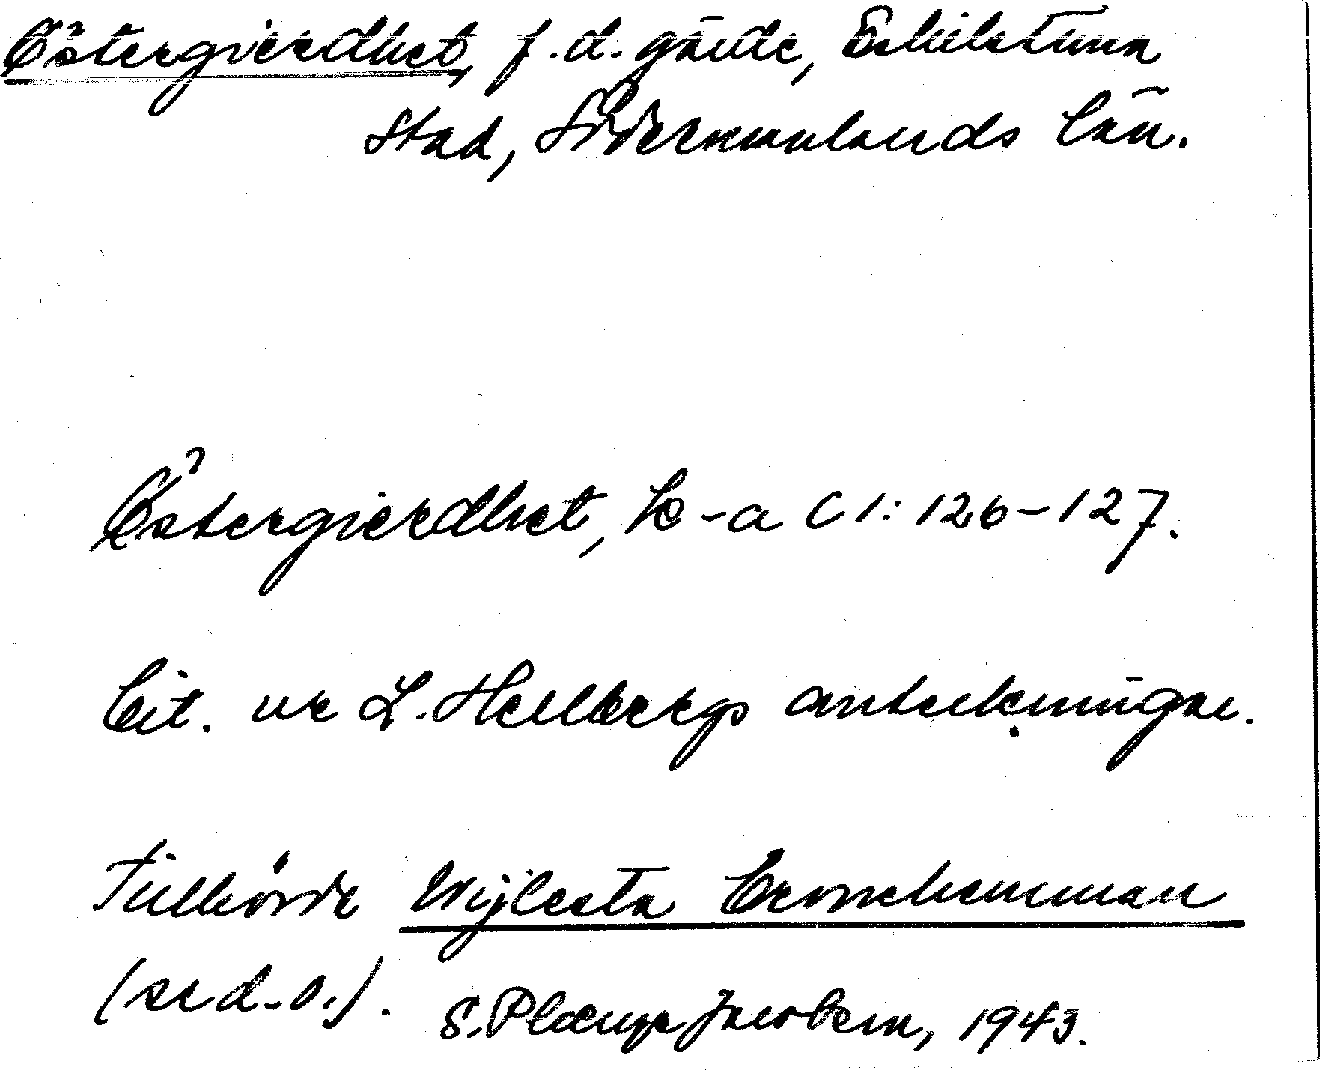 Östergierdhet, f.d. gärde, Eskilstuna
stad, Södermanlands län.
Östergierdhet, k-a C 1: 126-127.
Cit. ur L. Hellbergs anteckningar.
Tillhörde Wijlesta Cronehemman
(se d.o.). S. Jacobson, 1943.